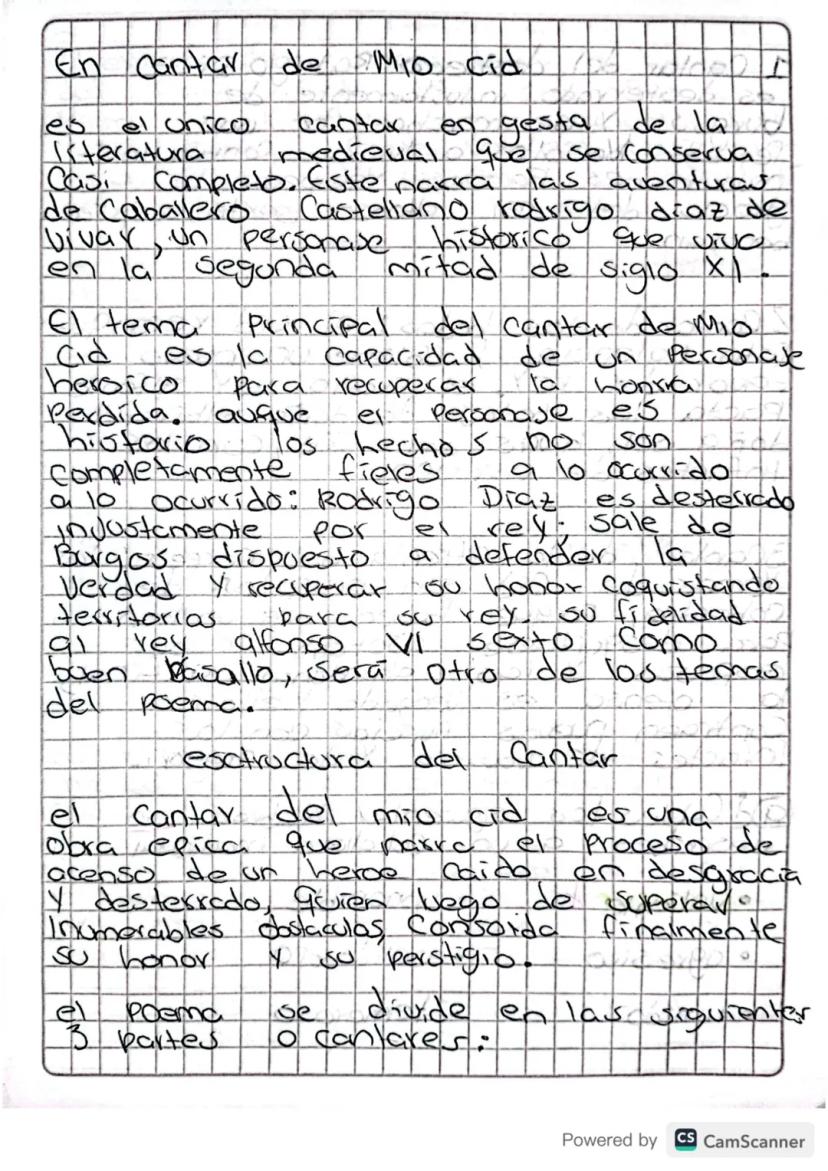 En cantar de Mio cid 1
es el unico cantar en gesta de la
literatura medieval que se conserva
Casi completo. Este narra las aventuras
de Caballero Castellano rodrigo diaz de
Vivar, un personaje historico que vivo
en la segunda mitad de siglo XI.
El tema Principal del cantar de Mio
Cid es la capacidad de un Personaje
heroico para recuperar la honra
Perdida. auque el Personaje es
historio los hechos no son
completamente fieles a lo ocurrido
a lo ocurrido: Rodrigo Diaz es desterrado
injustamente por el rey; sale de
Burgos dispuesto a defender la
Verdad y recuperar su honor coquistando
territorias para su rey. su fidelidad
al rey alfonso VI sexto como
buen Basallo, será otro de los temas
del poema.
esctructura del Cantar
el cantar del mio cid es una
obra epica que narra el proceso de
acenso de un heroe caido en desgracia
y desterrado, quien luego de superar
Inumerables obstaculos, Consolida finalmente
su honor y su perstigio.
el poema se divide en las siguienter
3 partes o cantares:
Powered by CS CamScanner